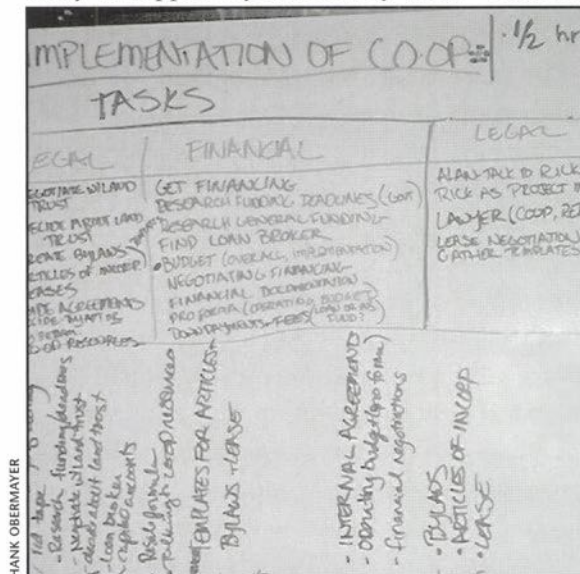 IMPLEMENTATION OF CO-OP
· 1/2 hr
TASKS
EGAL
EGOTIATE W/LAND
TRUST
ECIDE ABOUT LAND
TRUST
BYLAWS
TICLES OF INCORP
EASES
AGREEMENTS
RESOURCES
FINANCIAL
GET FINANCING
RESEARCH FUNDING DEADLINES
RESEARCH GENERAL FUNDING
FIND LOAN BROKER
• BUDGET (OVERALL, IMPLEMENTATION)
NEGOTIATING FINANCING
FINANCIAL DOCUMENTATION
PRO FORMA (OPERATING BUDGET)
DOWNPAYMENTS - FEES
LEGAL
ALAN-TALK TO RICK
RICK AS PROJECT M
LAWYER (COOP, RE
LEASE NEGOTIATION
GATHER TEMPLATES
- Research funding/deadlines
- Negotiate w/land trust
decide about land trust
- loan broker
TEMPLATES FOR ARTICLES
BYLAWS + LEASE
- INTERNAL AGREEMENTS
- Operating budget (pro forma)
- financial negotiations
- BYLAWS
- ARTICLES OF INCORP
- LEASE
HANK OBERMAYER